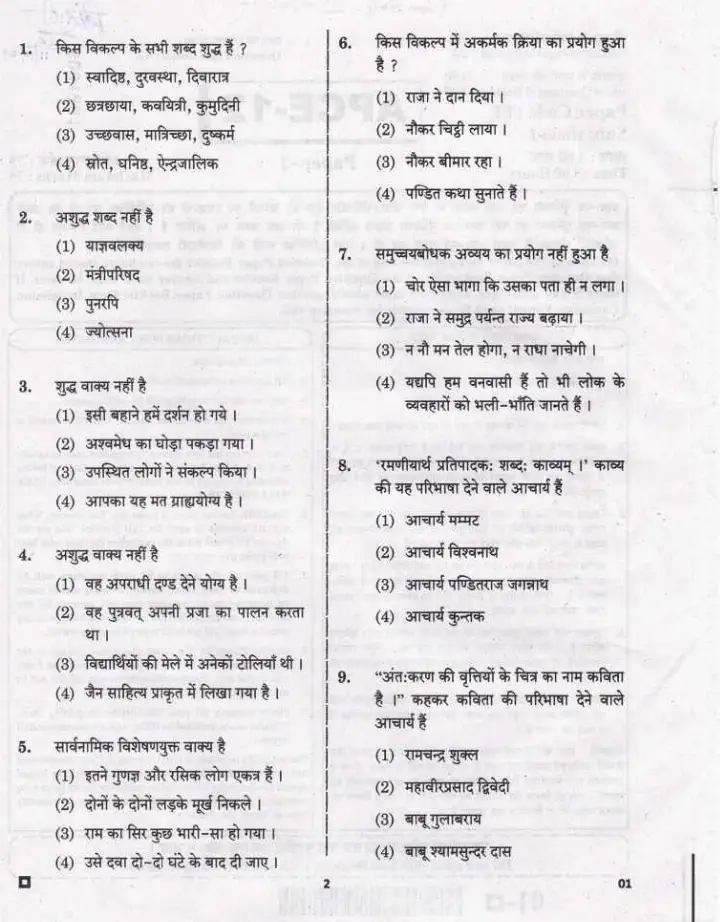 1. किस विकल्प के सभी शब्द शुद्ध हैं ?
(1) स्वादिष्ठ, दुरवस्था, दिवारात्र
(2) छत्रछाया, कवयित्री, कुमुदिनी
(3) उच्छवास, मात्रिच्छा, दुष्कर्म
(4) स्रोत, घनिष्ठ, ऐन्द्रजालिक
2. अशुद्ध शब्द नहीं है
(1) याज्ञवलक्य
(2) मंत्रीपरिषद
(3) पुनरपि
(4) ज्योत्सना
3. शुद्ध वाक्य नहीं है
(1) इसी बहाने हमें दर्शन हो गये ।
(2) अश्वमेध का घोड़ा पकड़ा गया ।
(3) उपस्थित लोगों ने संकल्प किया ।
(4) आपका यह मत ग्राह्ययोग्य है ।
4. अशुद्ध वाक्य नहीं है
(1) वह अपराधी दण्ड देने योग्य है ।
(2) वह पुत्रवत् अपनी प्रजा का पालन करता
था ।
(3) विद्यार्थियों की मेले में अनेकों टोलियाँ थी ।
(4) जैन साहित्य प्राकृत में लिखा गया है ।
5. सार्वनामिक विशेषणयुक्त वाक्य है
(1) इतने गुणज्ञ और रसिक लोग एकत्र हैं ।
(2) दोनों के दोनों लड़के मूर्ख निकले ।
(3) राम का सिर कुछ भारी-सा हो गया ।
(4) उसे दवा दो-दो घंटे के बाद दी जाए ।
6. किस विकल्प में अकर्मक क्रिया का प्रयोग हुआ
है ?
(1) राजा ने दान दिया ।
(2) नौकर चिट्ठी लाया ।
(3) नौकर बीमार रहा ।
(4) पण्डित कथा सुनाते हैं ।
7. समुच्चयबोधक अव्यय का प्रयोग नहीं हुआ है
(1) चोर ऐसा भागा कि उसका पता ही न लगा ।
(2) राजा ने समुद्र पर्यन्त राज्य बढ़ाया ।
(3) न नौ मन तेल होगा, न राधा नाचेगी ।
(4) यद्यपि हम वनवासी हैं तो भी लोक के
व्यवहारों को भली-भाँति जानते हैं ।
8. ‘रमणीयार्थ प्रतिपादक: शब्द: काव्यम् ।’ काव्य
की यह परिभाषा देने वाले आचार्य हैं
(1) आचार्य मम्मट
(2) आचार्य विश्वनाथ
(3) आचार्य पण्डितराज जगन्नाथ
(4) आचार्य कुन्तक
9. “अंत:करण की वृत्तियों के चित्र का नाम कविता
है ।” कहकर कविता की परिभाषा देने वाले
आचार्य हैं
(1) रामचन्द्र शुक्ल
(2) महावीरप्रसाद द्विवेदी
(3) बाबू गुलाबराय
(4) बाबू श्यामसुन्दर दास
2
01